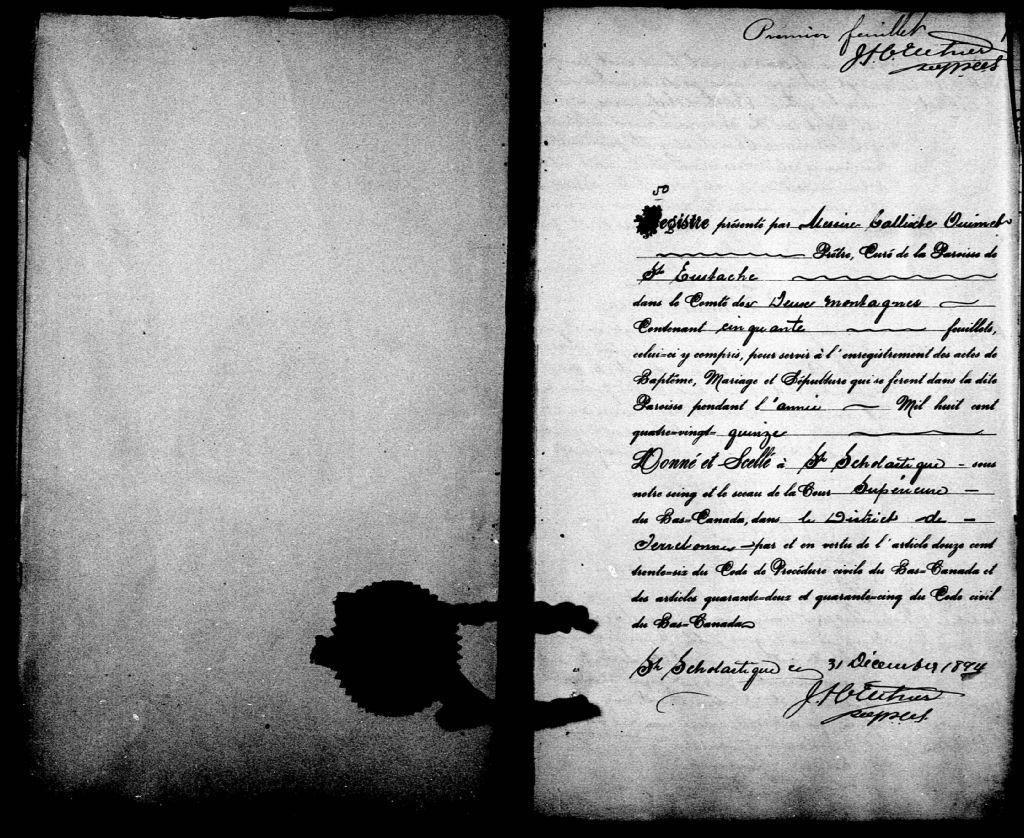 Premier feuillet
50
Registre présenté par Messire Callixte Ouimet
Prêtre, Curé de la Paroisse de
St Eustache
dans le Comté des Deux montagnes
Contenant cinquante feuillets,
celui-ci y compris, pour servir à l'enregistrement des actes de
Baptême, Mariage et Sépulture qui se feront dans la dite
Paroisse pendant l'année Mil huit cent
quatre-vingt-quinze
Donné et Scellé à Ste Scholastique - sous
notre seing et le sceau de la Cour Supérieure -
du Bas-Canada, dans le District de -
Terrebonne - par et en vertu de l'article douze cent
trente-six du Code de Procédure civile du Bas-Canada et
des articles quarante-deux et quarante-cinq du Code civil
du Bas-Canada
Ste Scholastique ce 31 Décembre 1894